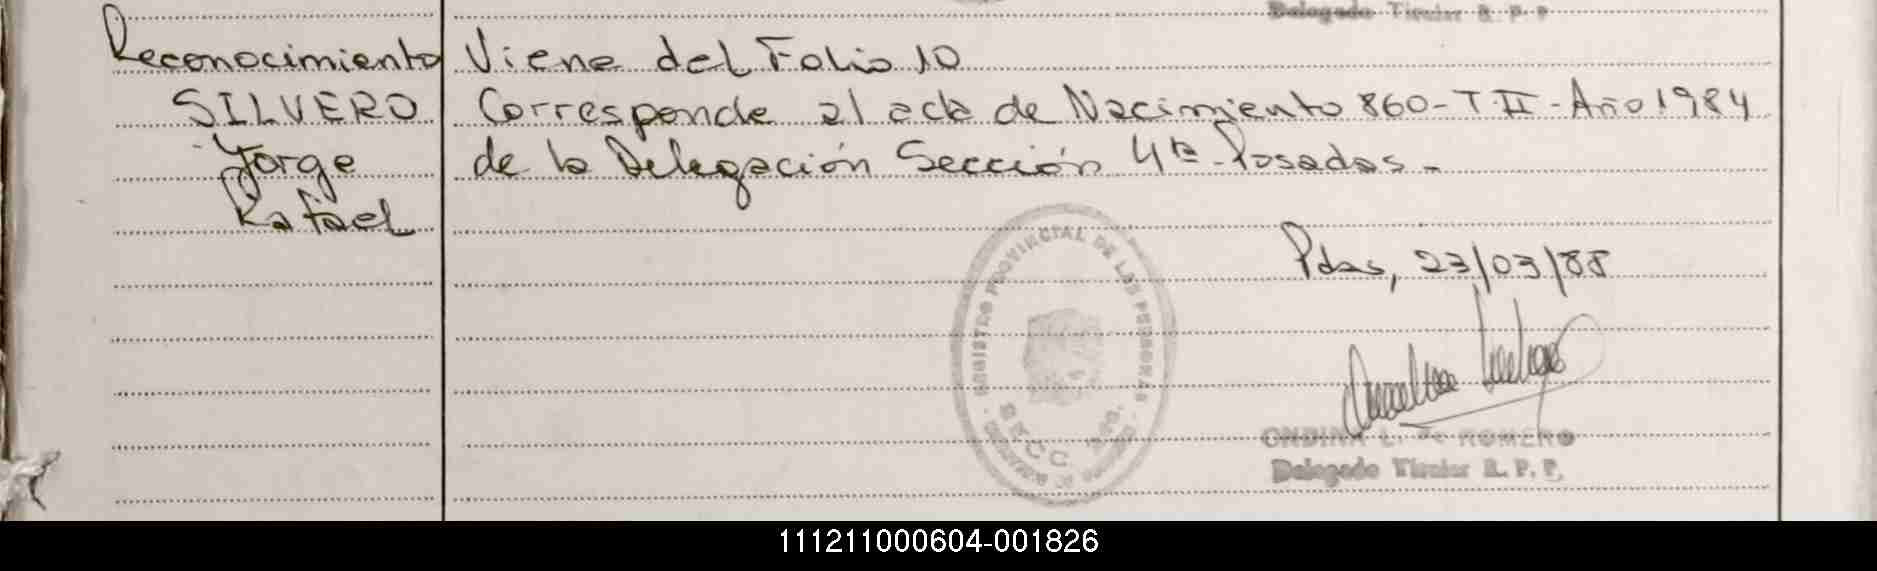 Delegado Titular R. P. P.
Reconocimiento
SILVERO
Jorge
Rafael
Viene del Folio 10
Corresponde al acta de Nacimiento 860-T.II-Año 1984
de la Delegación Sección 4ta-Posadas.-
Pdas, 23/03/88
REGISTRO PROVINCIAL DE LAS PERSONAS
SECC
ONDINA L. de ROMERO
Delegado Titular R. P. P.
111211000604-001826